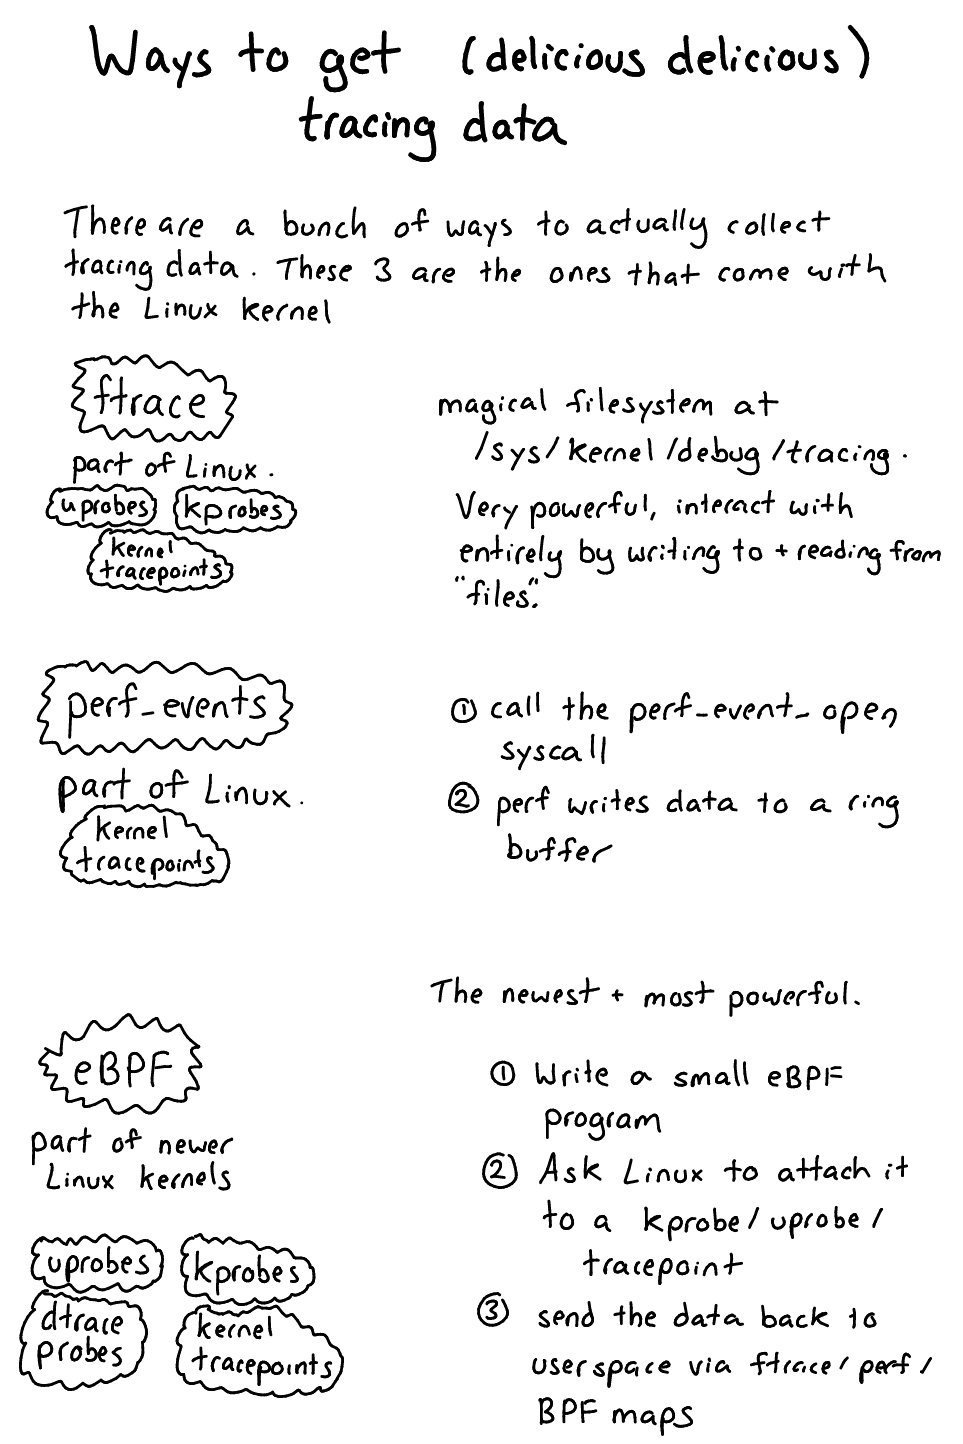 Ways to get (delicious delicious)
tracing data
There are a bunch of ways to actually collect
tracing data. These 3 are the ones that come with
the Linux kernel
ftrace
part of Linux.
uprobes kprobes
kernel
tracepoints
magical filesystem at
/sys/kernel/debug/tracing.
Very powerful, interact with
entirely by writing to + reading from
"files".
perf_events
part of Linux.
kernel
tracepoints
① call the perf_event_open
syscall
② perf writes data to a ring
buffer
eBPF
part of newer
Linux kernels
uprobes kprobes
dtrace
probes
kernel
tracepoints
The newest + most powerful.
① Write a small eBPF
program
② Ask Linux to attach it
to a kprobe/uprobe/
tracepoint
③ send the data back to
userspace via ftrace/perf/
BPF maps